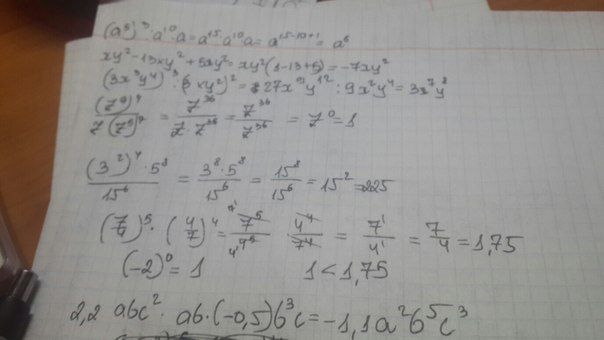 (a⁵)³ · a¹⁰ · a = a¹⁵ · a¹⁰ · a = a¹⁵⁻¹⁰⁺¹ = a⁶
xy² - 13xy² + 5xy² = xy²(1-13+5) = -7xy²
(3x³y⁴)³ : (3xy²)² = 27x⁹y¹² : 9x²y⁴ = 3x⁷y⁸
(7⁹)⁴ / 7(7⁵)⁷ = 7³⁶ / 7 · 7³⁵ = 7³⁶ / 7³⁶ = 7⁰ = 1
(3²)⁴ · 5⁸ / 15⁶ = 3⁸ · 5⁸ / 15⁶ = 15⁸ / 15⁶ = 15² = 225
(7/4)⁵ · (4/7)⁴ = 7⁵ / 4⁵ · 4⁴ / 7⁴ = 7¹ / 4¹ = 7/4 = 1,75
(-2)⁰ = 1 1 < 1,75
2,2 abc² · ab · (-0,5)b³c = -1,1a²b⁵c³